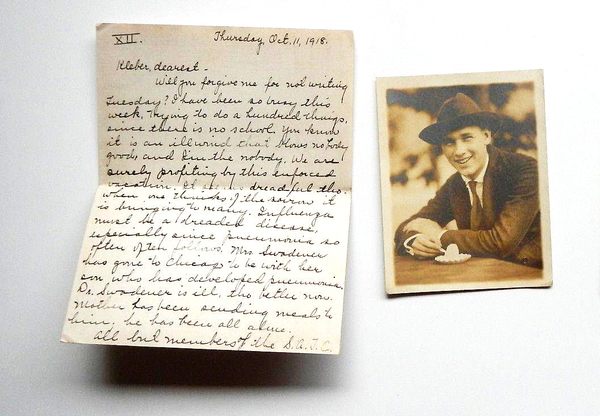 XII.
Thursday, Oct. 11, 1918.
Kleber, dearest -
Will you forgive me for not writing
Tuesday? I have been so busy this
week, trying to do a hundred things,
since there is no school. You know
it is an ill wind that blows nobody
good, and I'm the nobody. We are
surely profiting by this enforced
vacation. It is dreadful tho,
when one thinks of the sorrow it
is bringing to many. Influenza
must be a dreaded disease,
especially since pneumonia so
often follows. Mrs Swadener
has gone to Chicago to be with her
son, who has developed pneumonia.
Dr. Swadener is ill, tho better now.
Mother has been sending meals to
him; he has been all alone.
All but members of the S.A.T.C.